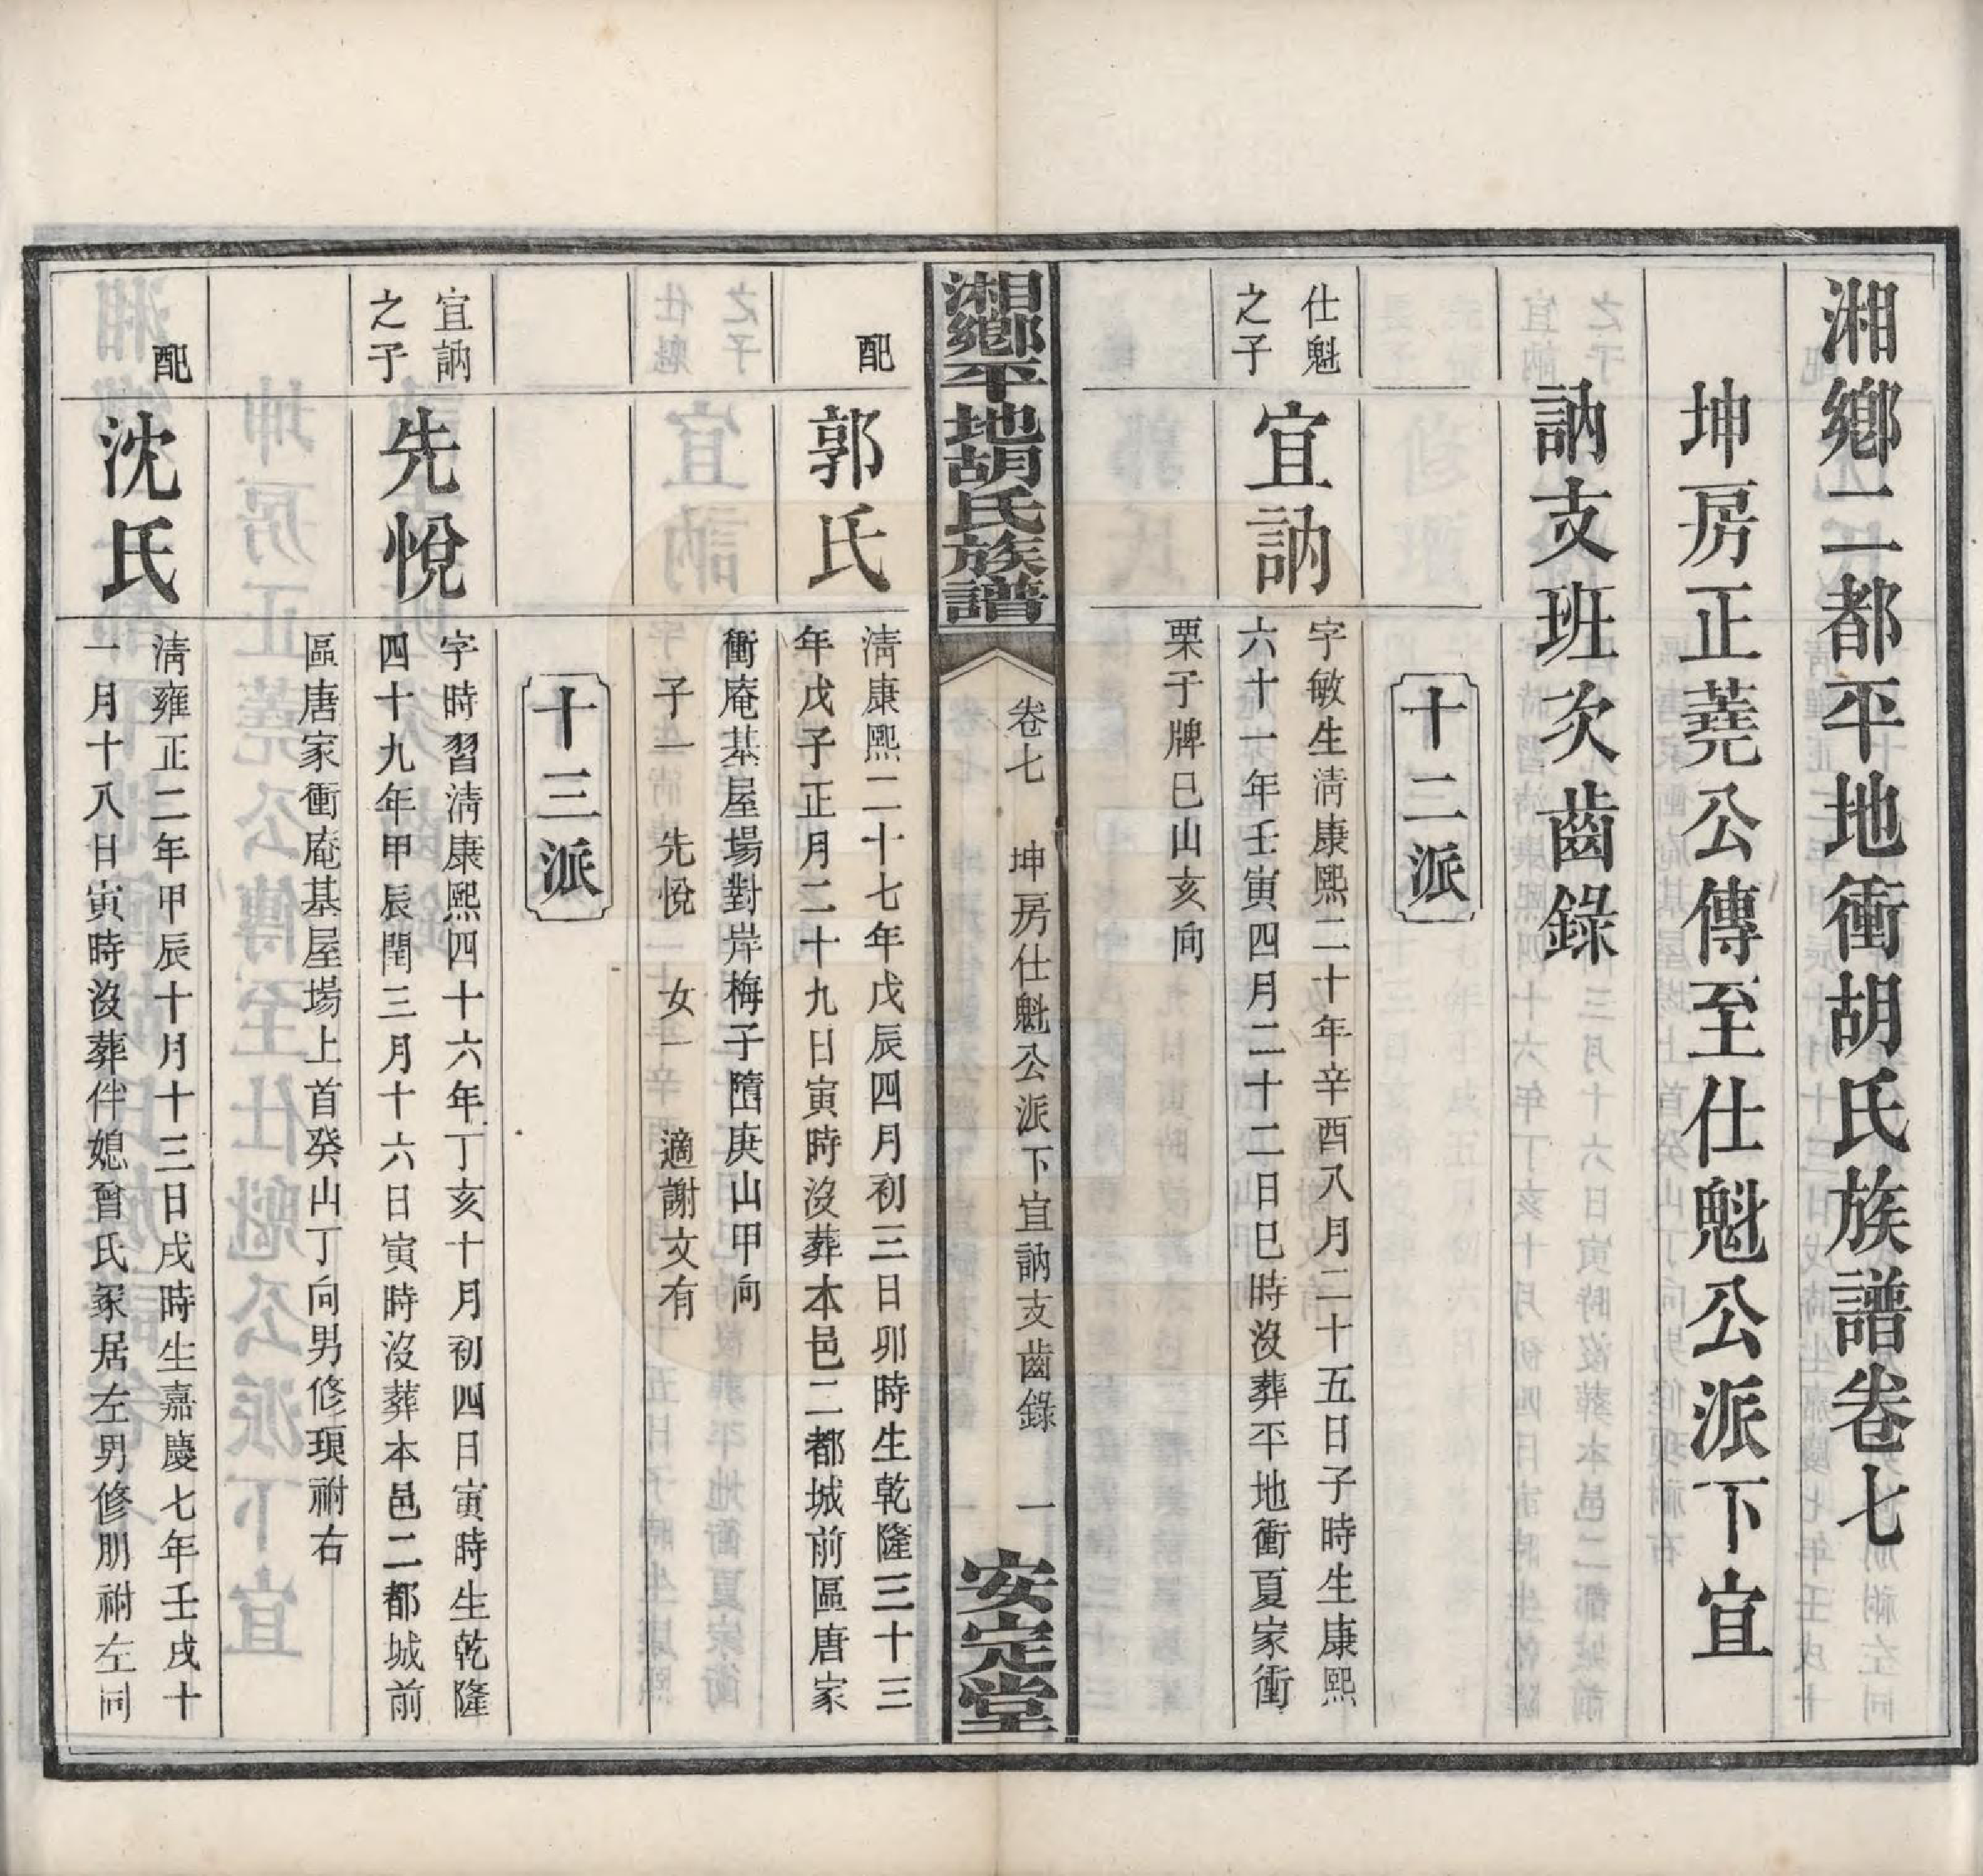 湘鄉二都平地衝胡氏族譜卷七
坤房正蕘公傳至仕魁公派下宜
訥支班次齒錄
十二派
仕魁
之子
宜訥
字敏生淸康熙二十年辛酉八月二十五日子時生康熙
六十一年壬寅四月二十二日巳時沒葬平地衝夏家衝
栗于牌巳山亥向
湘鄉平地胡氏族譜
卷七
坤房仕魁公派下宜訥支齒錄
一
安定堂
配
郭氏
淸康熙二十七年戊辰四月初三日卯時生乾隆三十三
年戊子正月二十九日寅時沒葬本邑二都城前區唐家
衝庵基屋場對岸梅子墮庚山甲向
子一 先悅 女一 適謝文有
十三派
宜訥
之子
先悅
字時習淸康熙四十六年丁亥十月初四日寅時生乾隆
四十九年甲辰閏三月十六日寅時沒葬本邑二都城前
區唐家衝庵基屋場上首癸山丁向男修瑻祔右
配
沈氏
淸雍正二年甲辰十月十三日戌時生嘉慶七年壬戌十
一月十八日寅時沒葬伴媳曾氏冢居左男修朋祔左同